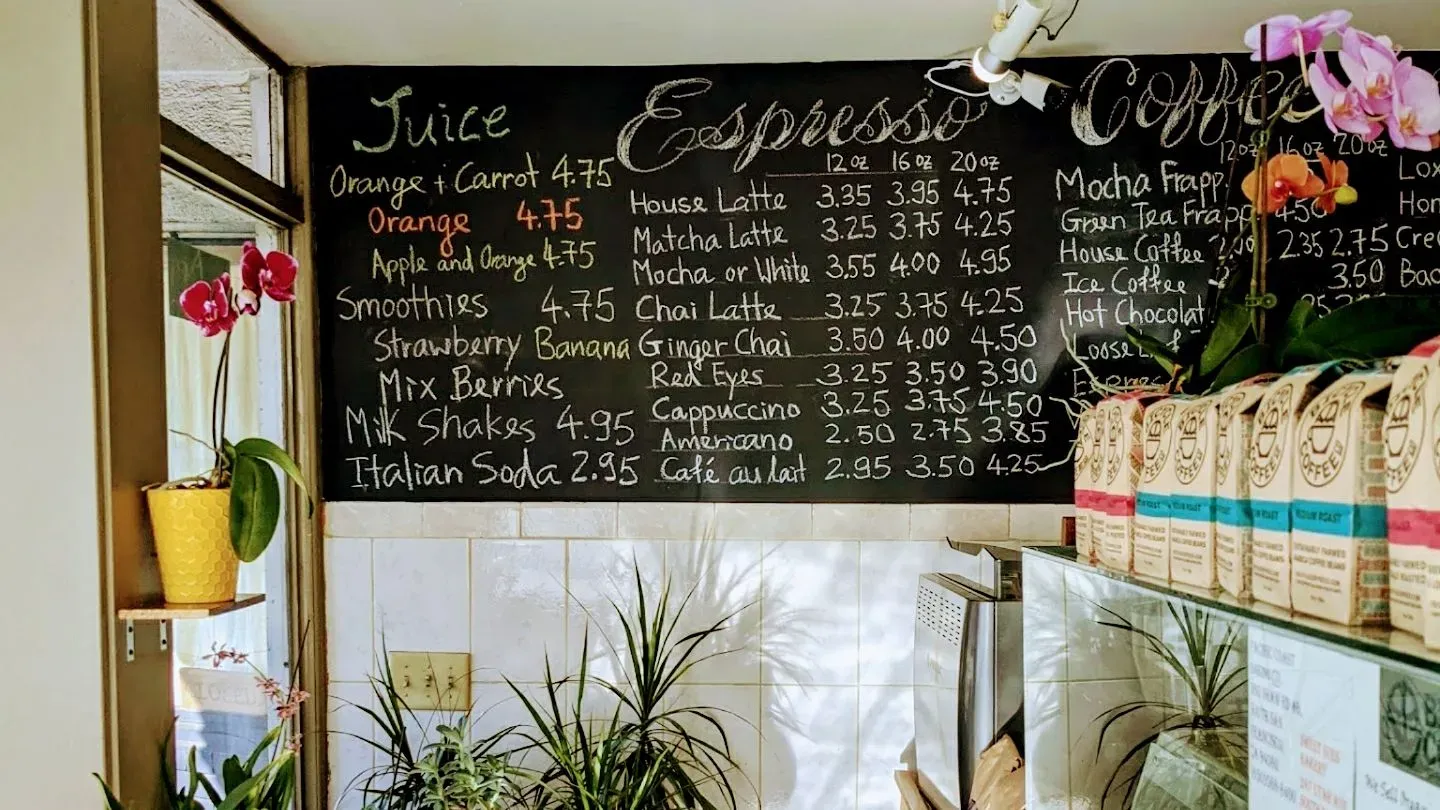 Juice
Orange + Carrot 4.75
Orange 4.75
Apple and Orange 4.75
Smoothies 4.75
Strawberry Banana
Mix Berries
Milk Shakes 4.95
Italian Soda 2.95
Espresso
12oz 16oz 20oz
House Latte 3.35 3.95 4.75
Matcha Latte 3.25 3.75 4.25
Mocha or White 3.55 4.00 4.95
Chai Latte 3.25 3.75 4.25
Ginger Chai 3.50 4.00 4.50
Red Eyes 3.25 3.50 3.90
Cappuccino 3.25 3.75 4.50
Americano 2.50 2.75 3.85
Café au lait 2.95 3.50 4.25
Coffee
12oz 16oz 20oz
Mocha Frapp
Green Tea Frapp 4.50
House Coffee 2.35 2.75
Ice Coffee 3.50
Hot Chocolat
Loose
COFFEE
COFFEE
COFFEE
MEDIUM ROAST
We Sell